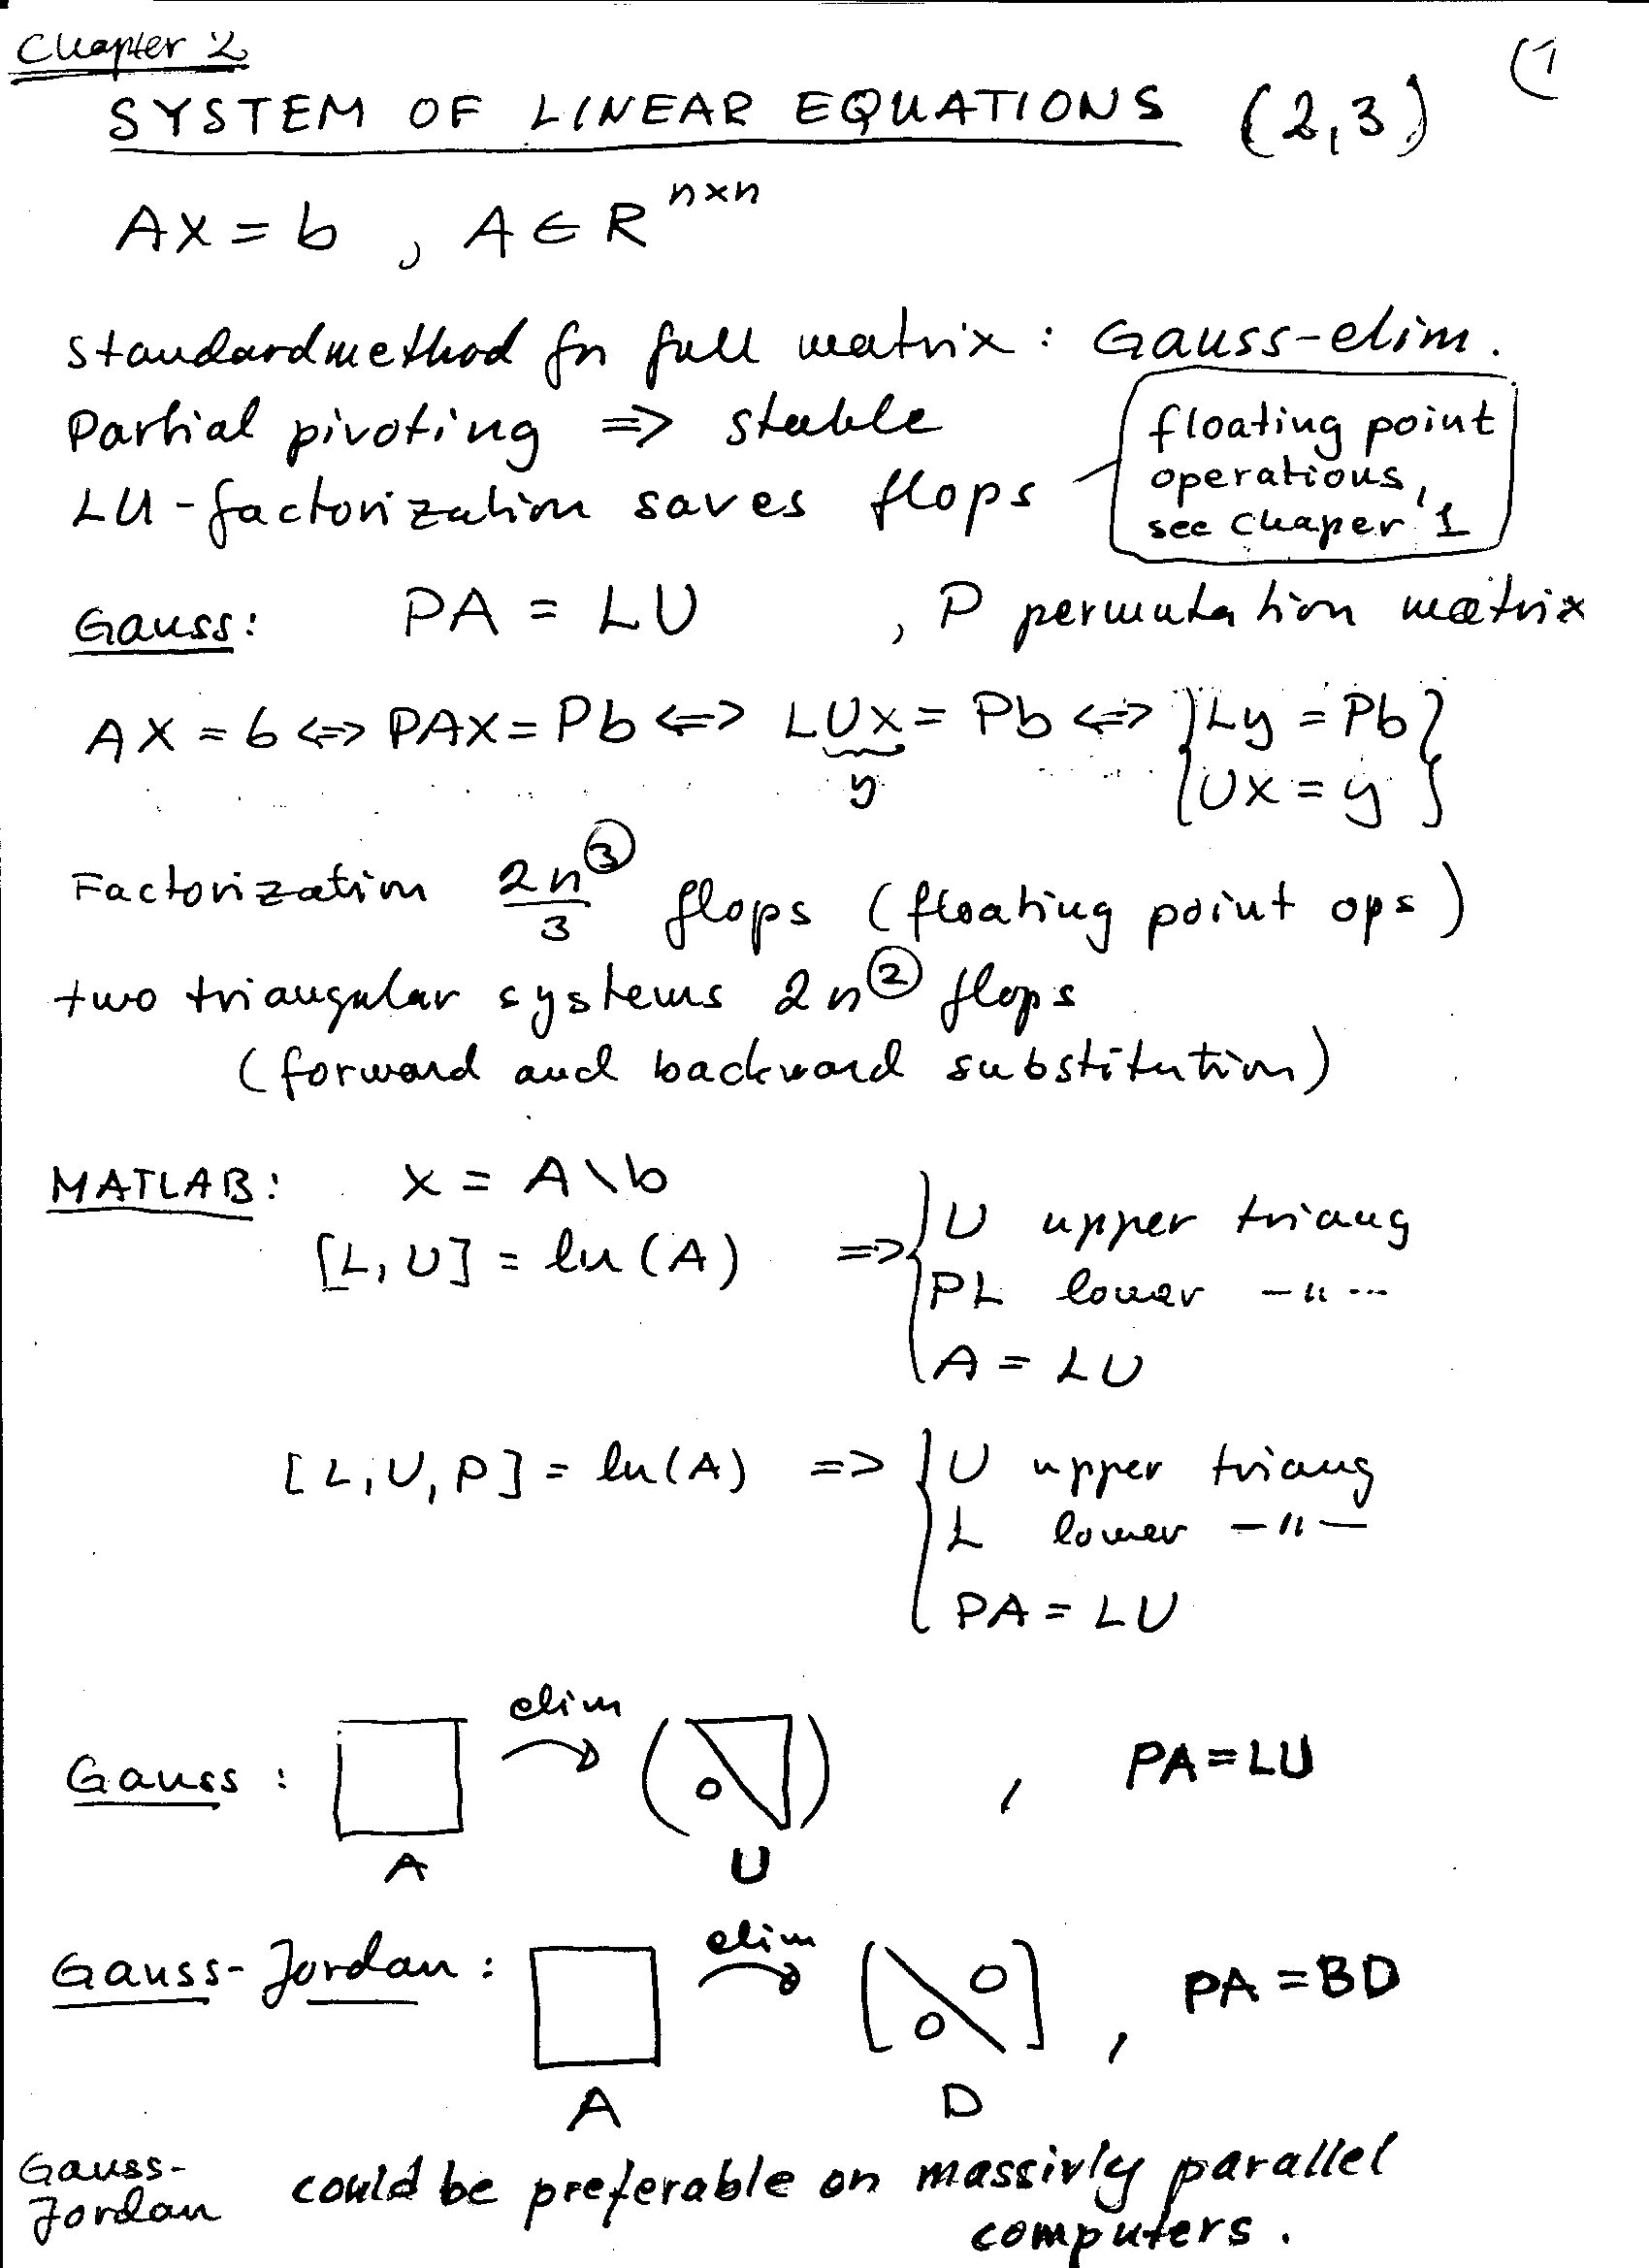 Chapter 2
(1
SYSTEM OF LINEAR EQUATIONS (2,3)
AX = b , A ∈ R^{n×n}
Standardmethod for full matrix: Gauss-elim.
Partial pivoting => stable
LU-factorization saves flops
floating point
operations,
see Chaper 1
Gauss: PA = LU , P permutation matrix
AX = b <=> PAX = Pb <=> LUx = Pb <=> { Ly = Pb }
y { UX = y }
Factorization 2n^3/3 flops (floating point ops)
two triangular systems 2n^2 flops
(forward and backward substitution)
MATLAB: x = A\b
[L, U] = lu(A) => { U upper triang
PL lower -"-
A = LU
[L, U, P] = lu(A) => { U upper triang
L lower -"-
PA = LU
elim
Gauss: ( 0 ) , PA = LU
A U
elim
Gauss-Jordan: [ 0 0 ] , PA = BD
A D
Gauss-
Jordan could be preferable on massivly parallel
computers.